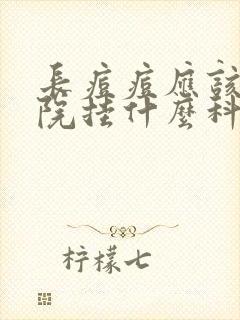 長痘痘應該
院挂什麼科
柠檬七